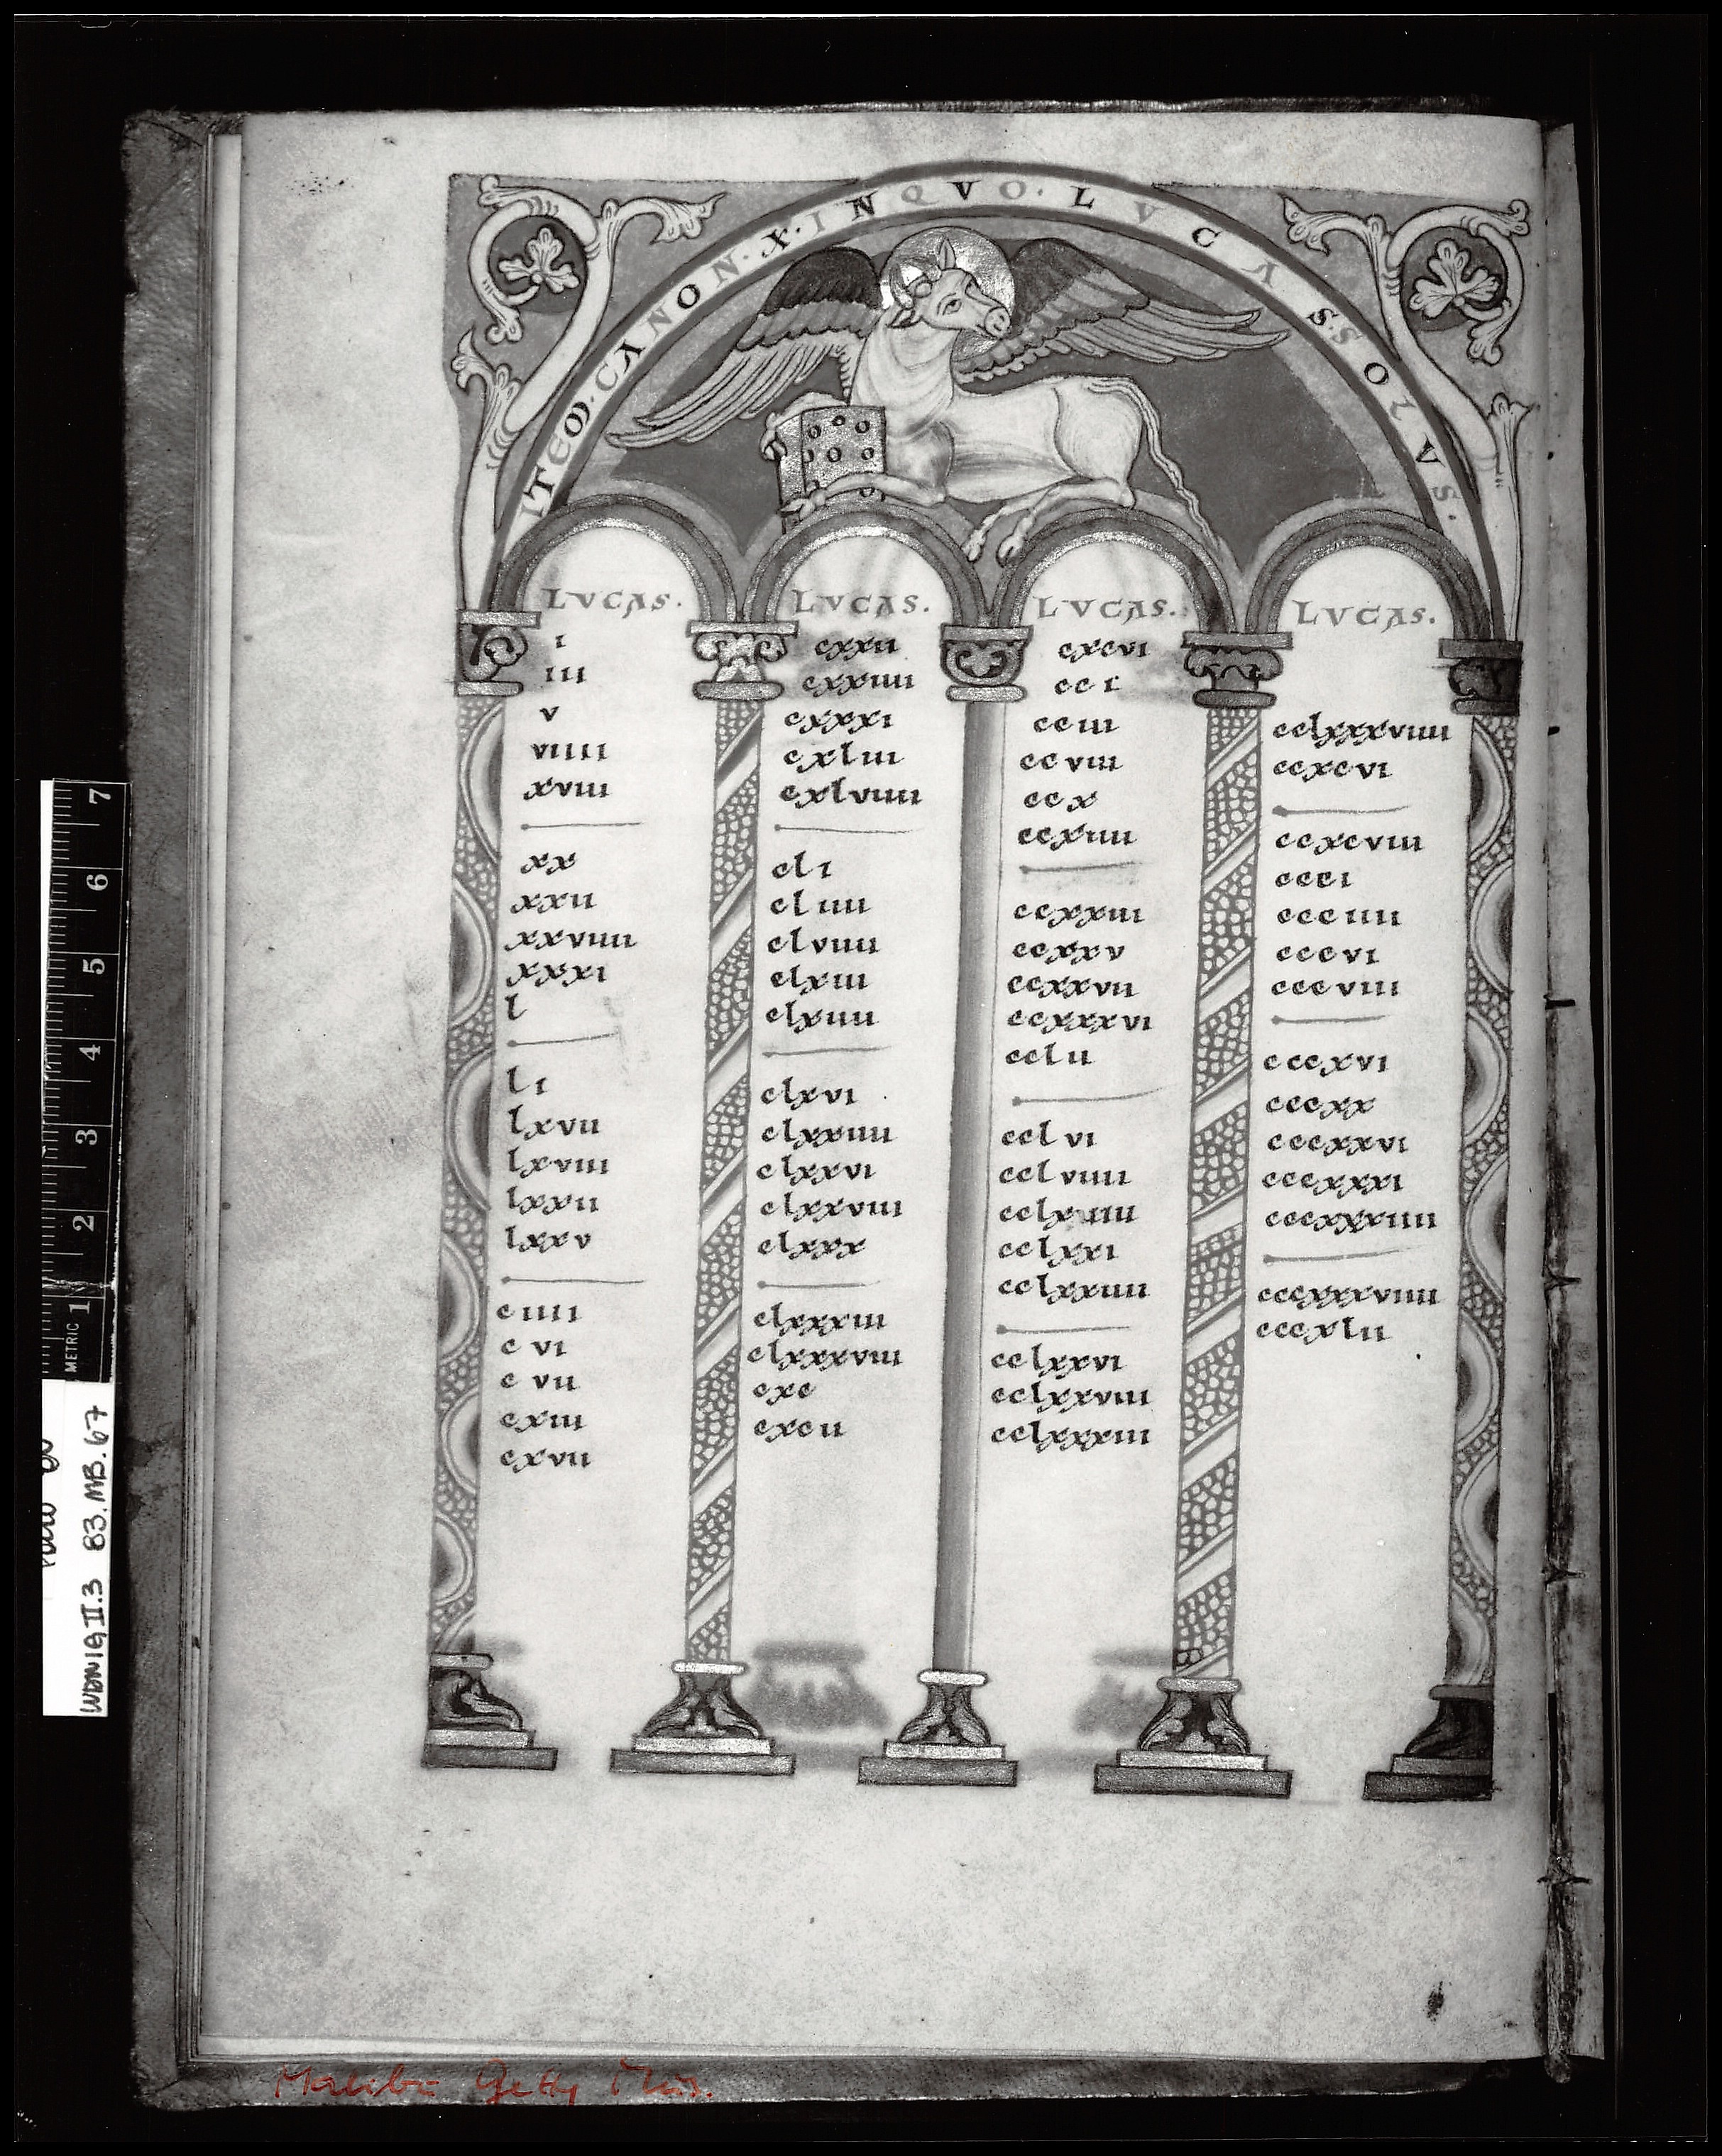 ITEM·CANON·X·INQVO·LVCAS·SOLVS·
LVCAS.
i
iii
v
viiii
xviii
xx
xxii
xxviiii
xxxi
l
li
lxvii
lxviii
lxxii
lxxv
ciiii
cvi
cvii
cxiii
cxvii
LVCAS.
cxxii
cxxiiii
cxxxi
cxliii
cxlviiii
cli
cliiii
clviiii
clxiii
clxiiii
clxvi
clxxiiii
clxxvi
clxxviii
clxxx
clxxxiii
clxxxviii
cxc
cxcii
LVCAS.
cxcvi
cci
cciii
ccviii
ccx
ccxiiii
ccxxiii
ccxxv
ccxxvii
ccxxxvi
cclii
cclvi
cclviiii
cclxxi
cclxxiiii
cclxxvi
cclxxviii
cclxxxiii
LVCAS.
cclxxxviiii
ccxcvi
ccxcviii
ccci
ccciiii
cccvi
cccviii
cccxvi
cccxx
cccxxvi
cccxxxi
cccxxxiiii
cccxxxviiii
cccxlii
7
6
5
4
3
2
METRIC 1
LUDWIG II.3 83.MB.67
Malibu Getty Mus.